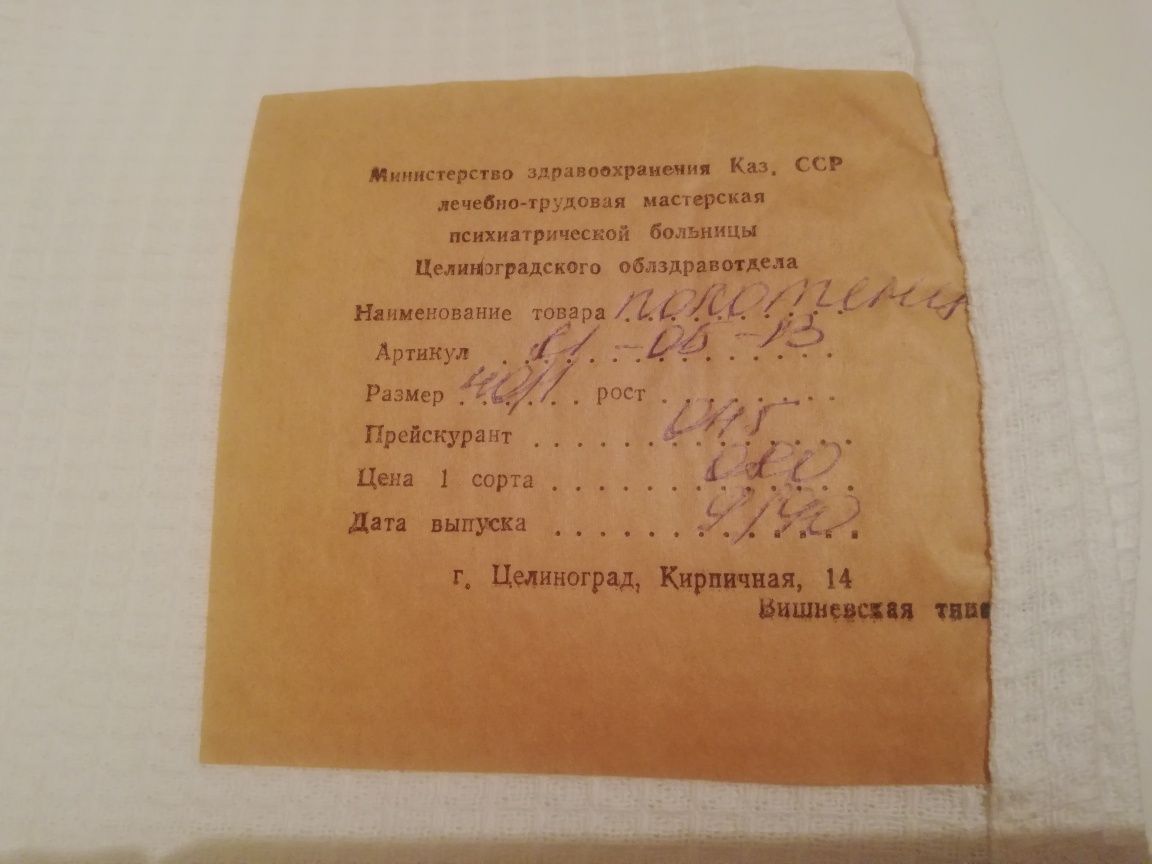 Министерство здравоохранения Каз. ССР
лечебно-трудовая мастерская
психиатрической больницы
Целиноградского облздравотдела
Наименование товара полотенця
Артикул 81-06-13
Размер 40/1 рост
Прейскурант 045
Цена 1 сорта
Дата выпуска
г. Целиноград, Кирпичная, 14
Вишневская типо